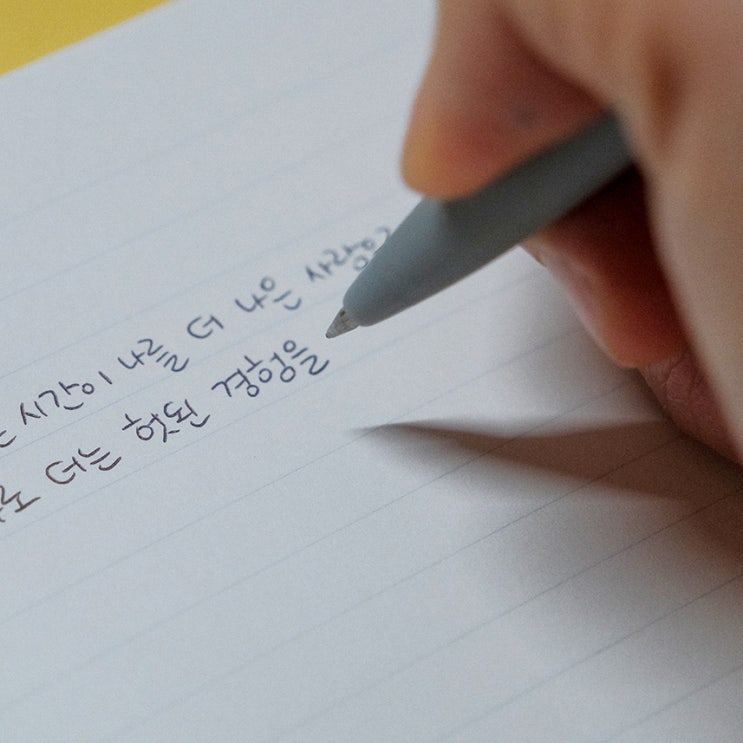 는 시간이 나를 더 나은 사람으
로 더는 헛된 경험을